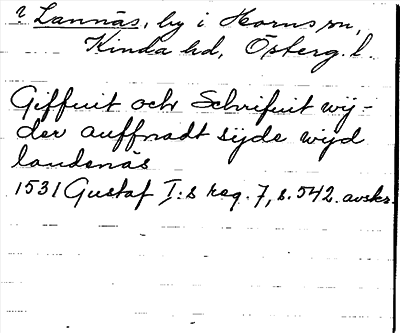 ? Lannäs, by i Horns sn,
Kinda hd, Österg. l.
Giffuit och Schrifuit wij-
der auffnadt sijde wijd
landenäs
1531 Gustaf I:s reg. 7, s. 542. avskr.